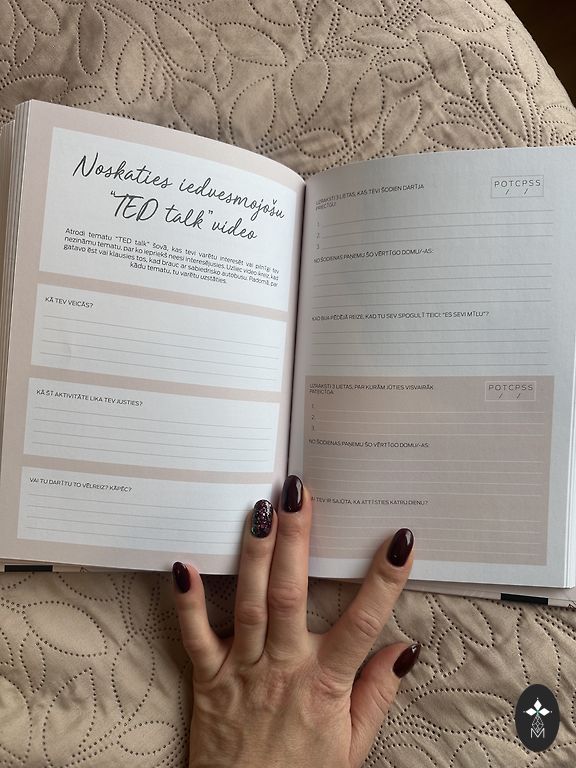 Noskaties iedvesmojošu
"TED talk" video
Atrodi tematu "TED talk" šovā, kas tevi varētu interesēt vai pilnīgi tev
nezināmu tematu, par ko iepriekš neesi interesējusies. Uzliec video kreiz, kad
gatavo ēst vai klausies tos, kad brauc ar sabiedrisko autobusu. Padomā, par
kādu tematu, tu varētu uzstāties.
KĀ TEV VEICĀS?
KĀ ŠĪ AKTIVITĀTE LIKA TEV JUSTIES?
VAI TU DARĪTU TO VĒLREIZ? KĀPĒC?
UZRAKSTI 3 LIETAS, KAS TEVI ŠODIEN DARĪJA
PRIECĪGU!
P O T C P S S
/ /
1.
2.
3.
NO ŠODIENAS PAŅEMU ŠO VĒRTĪGO DOMU/-AS:
KAD BIJA PĒDĒJĀ REIZE, KAD TU SEV SPOGULĪ TEICI: "ES SEVI MĪLU"?
UZRAKSTI 3 LIETAS, PAR KURĀM JŪTIES VISVAIRĀK
PATEICĪGA:
P O T C P S S
/ /
1.
2.
3.
NO ŠODIENAS PAŅEMU ŠO VĒRTĪGO DOMU/-AS:
AI TEV IR SAJŪTA, KA ATTĪSTIES KATRU DIENU?